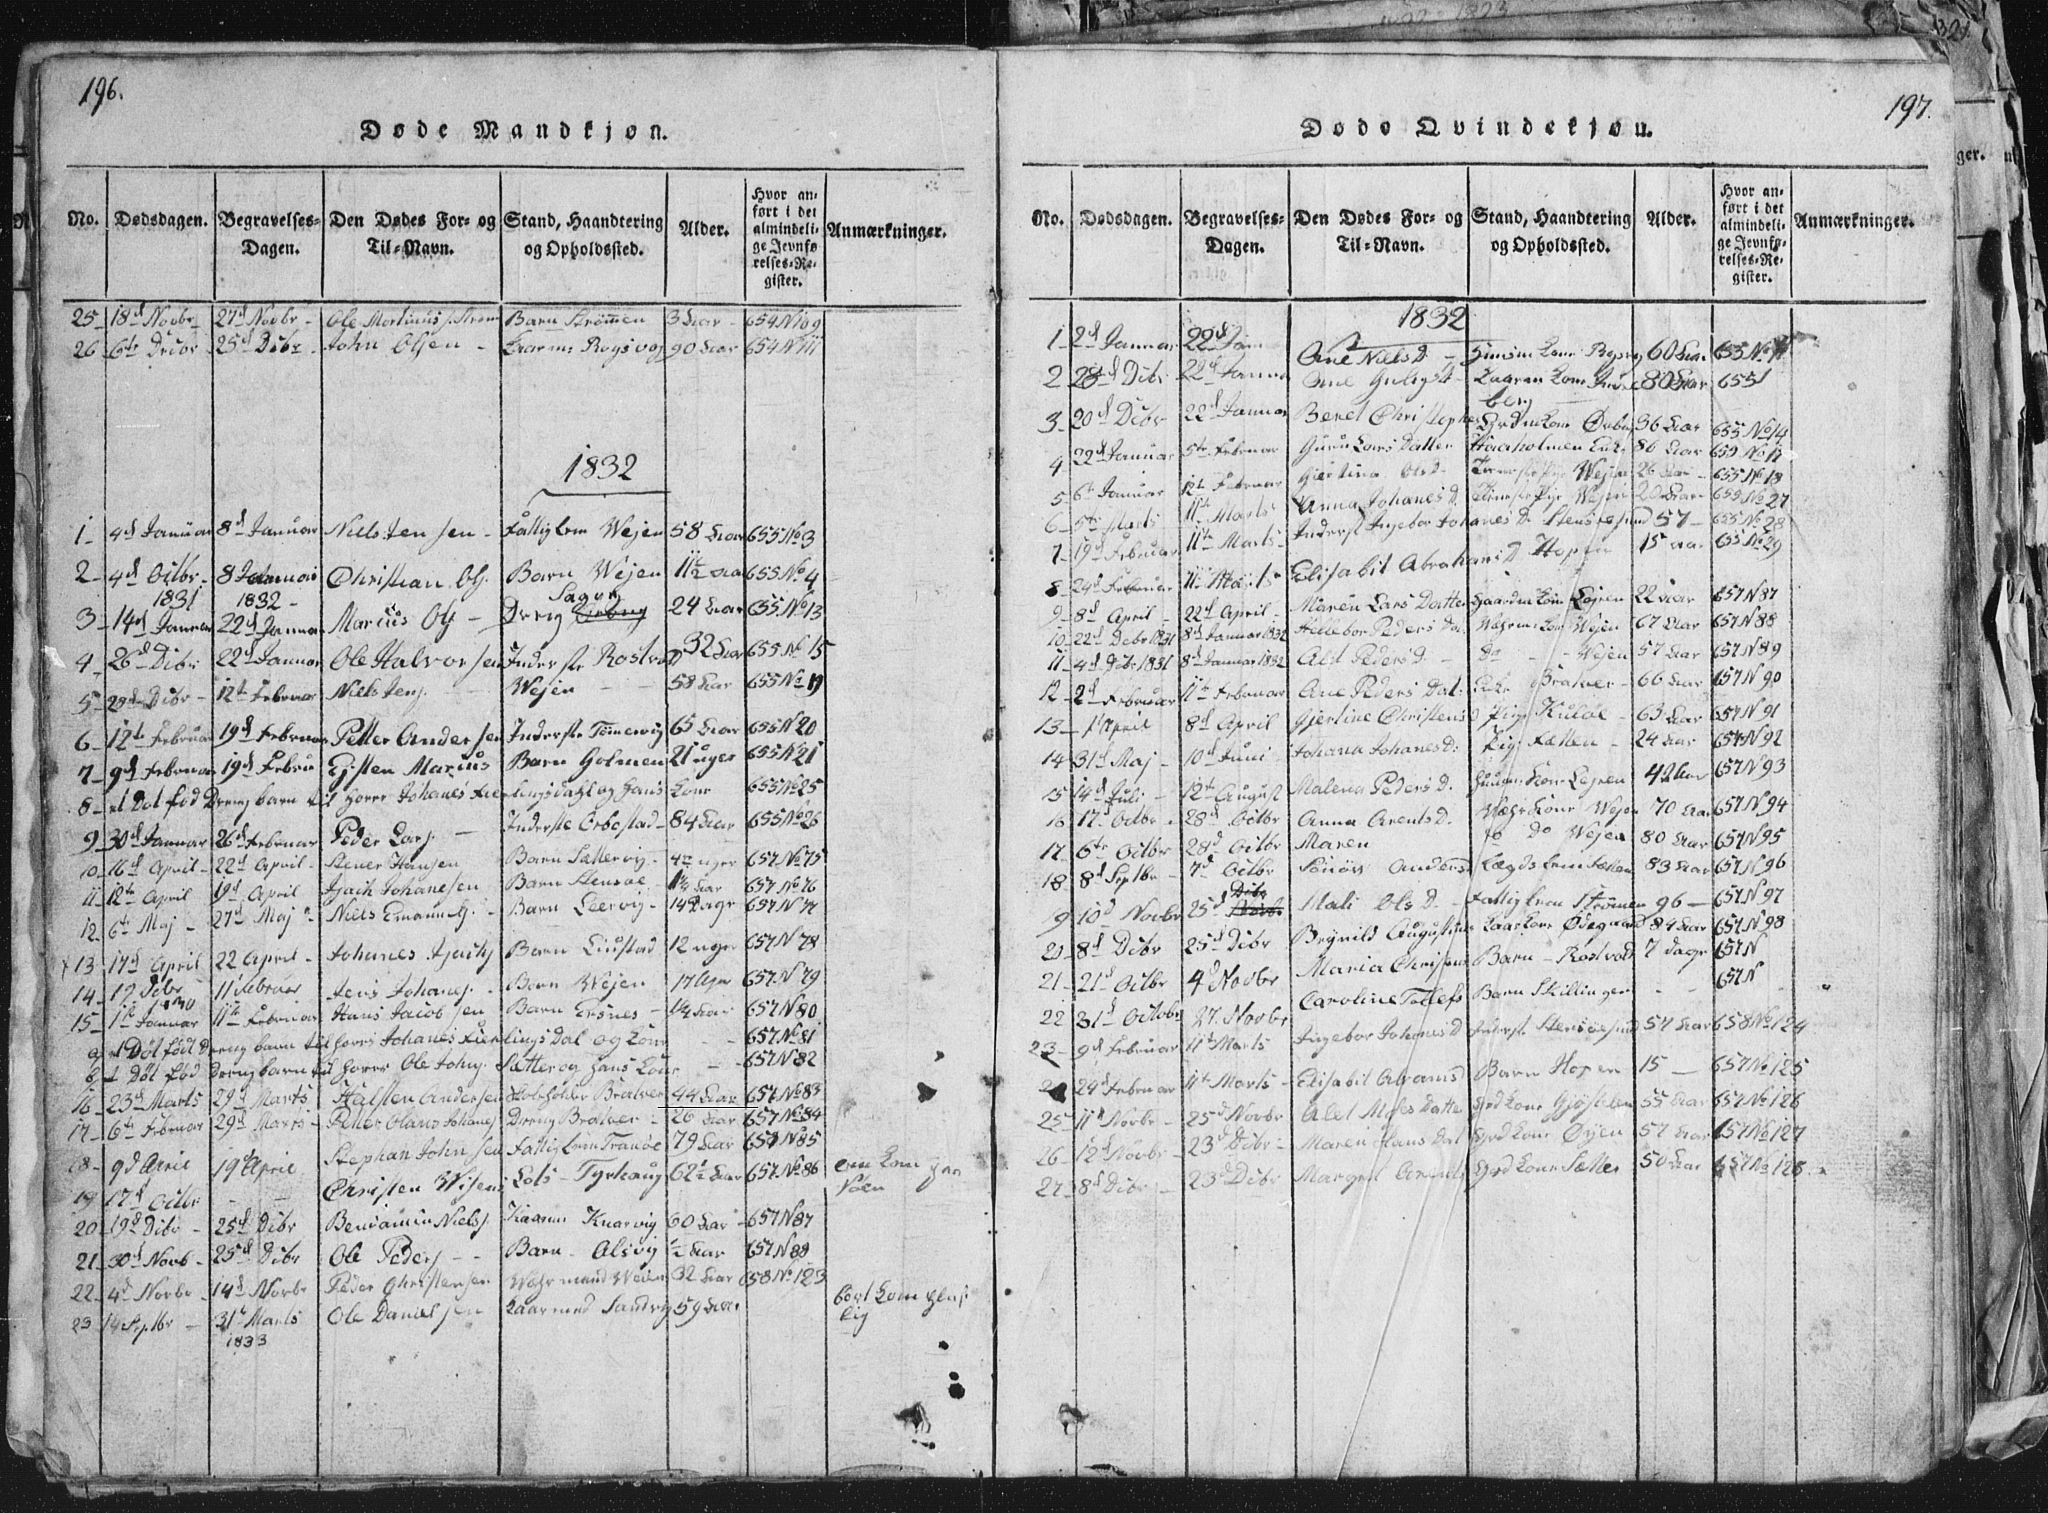 196.
Døde Mandkjøn.
No. Dødsdagen. Begravelses-Dagen. Den Dødes For- og Til-Navn. Stand, Haandtering og Opholdssted. Alder. Hvor anført i det almindelige Jevnførelses-Register. Anmærkninger.
25 18d Novbr 27d Novbr - Ole Martinus Barn Strømmen 3 aar 654 N109
26 6te Decbr 25d Dcbr John Olsen - 90 aar 654 N111
1832
1 4d Januar 8d Januar Niels Jensen - Fattiglem Wejen 58 aar 655 No 3
2 4d Octbr 1831 8 Januar 1832 Christian Ols. Barn Wejen 11½ aar 655 No 4
3 14d Januar 22d Januar Marius Ols - Dreng 24 aar 655 No 13
4 26d Dcbr 22d Januar Ole Halvorsen Inderste Rostvold 32 aar 655 No 15
5 29d Dcbr - 12te Februar Niels Jens. Wejen 58 aar 655 No 19
6 12te Februar 19d Februar Petter Andersen Inderste Tømmervig 65 aar 655 N20
7 9d Februar 19d Februar Marius Barn Holmen 21 uger 655 N21
8 et Døt fød Drengbarn til Horer Johanes Fierlingsdahl og Hans Kone 655 No 25
9 30d Januar 26d Februar Peder Lars. - Inderste 84 aar 655 No 26
10 16d April 22d April Hansen Barn Sættervig 4 uger 657 No 75
11 12te April 19d April Isach Johanesen Barn Stensøe 1¼ aar 657 No 76
12 6te Maj 27d Maj Niels Emanuels. Barn Leervig 14 Dage 657 N 77
13 17d April 22 April Johanes Isachs Barn 12 uger 657 N 78
14 17 Dcbr 1830 11 Februar Jens Johanes. Barn Wejen 17 Uger 657 N 79
15 1te Januar 11te Februar Hans Jacobsen Barn Ersnes 1¼ aar 657 N80
a et Døt født Dreng barn til Horers Johanes Fierlingsdal og Kone 657 No 81
b 1 Døt fød Drengbarn til Horer Ole Johns. Sætter og Hans Kone 657 N 82
16 23d Marts 29d Marts Halsten Andersen Bratvær 44 aar 657 No 83
17 6te Februar 29d Marts - Petter Olaus Johanes Dreng Bratvær - 26 aar 657 No 84
18 9d April 19d April Stephan Johnsen Fattiglem Tranøe 79 aar 657 N 85
19 17d Octbr - - Christen Lots - Tyrhaug 62½ aar 657 No 86
20 19d Dcbr 25d Dcbr Benjamin Niels. Kaarm Knarvig 60 aar 657 N87
21 30d Novb 25d Dcbr Ole Peders - - Barn - Alsvig ½ aar 657 N 88
22 4d Novbr 14d Novbr Peder Christensen Wæhrmand Wejen 32 aar 658 No 123
23 14 Septbr - 31te Marts 1833 Ole Danielsen Kaarmand Sandvig 59 aar

197.
Døde Qvindekjøn.
No. Dødsdagen. Begravelses-Dagen. Den Dødes For- og Til-Navn. Stand, Haandtering og Opholdssted. Alder. Hvor anført i det almindelige Jevnførelses-Register. Anmærkninger.
1832
1 2d Januar 22d Jan Ane Niels D - 60 aar 655 No
2 28d Dcbr 22d Januar Ane 80 aar 655
3 20d Dcbr 22d Januar Beret Christophers 36 aar 655 No 14
4 22d Januar 5te Februar Guru Lars Datter Haaholmen Enke 86 aar 655 No 17
5 6te Januar 12te Februar Giertina Ols D. Pige Wejen 26 aar 655 No 18
6 5te Marts 11te Marts Anna Johanes D. Pige Wejen 20 aar 655 No 27
7 19d Februar 11te Marts - Inderst Ingebor Johanes D Stensøesund 57 - 655 No 28
8 29d Februar 11te Marts Elisabit Abrahams D Hopen 15 aar 655 No 29
9 8d April 22d April - Maren Lars Datter Gaardm Kone Lejren 22 aar 657 N87
10 22d Dcbr 1831 8d Januar 1832 Hellebor Peders Da. Wæhrm Kone Wejen 67 aar 657 N 88
11 4d Dcbr 1831 8d Januar 1832 Alet Peders D. - Do - Wejen 57 aar 657 N89
12 2d Februar 11te Februar Ane Peders Dat. Enke Bratvær - 66 aar 657 N 90
13 1st April 8d April Gjertine Christens D Pige Kuløe - 63 aar 657 N 91
14 31d Maj - 10d Juni Johana Johanes D. Pige Sætter - 24 aar 657 N 92
15 14d Juli 12te August Malena Peders D. Kone Lejren 4 657 N 93
16 17d Octbr 28d Octbr Anna Arents D. Wæhr Kone Wejen 70 aar 657 N 94
17 6te Octbr 28d Octbr Maren Do Wejen 80 aar 657 N95
18 8d Septbr - 7d Octbr Anders D Lægdslem Sætter 83 aar 657 N 96
19 10d Novbr 25d Dcbr Mali Ols D - Fattiglem Strømen 96 - 657 N 97
20 8d Dcbr 25d Dcbr Brynild Augustinus Kaarkone Ødegaard 84 aar 657 N 98
21 21d Octbr 4d Novbr Maria Chrisens Barn - Rostvold 7 dage 657 N
22 31d Octobr 27. Novbr Caroline Tollefs Barn Skillinger - - 657 N
23 9d Februar 11te Marts Ingebor Johanes D Inderst Stensøesund 57 aar 658 No 124
24 29d Februar 11te Marts - Elisabit Abrams D Barn Hopen 15 - 657 No 125
25 11te Novbr - 25d Novbr Alet Moses Datter Grd Kone Gjøstølen 55 aar 657 No 126
26 12d Novbr - 23d Dcbr - Maren Hans Dat Grd Kone Øyen 57 aar 657 No 127
27 8d Dcbr - 23d Dcbr Margret Arents Grd Kone Sætter 50 aar 657 No 128